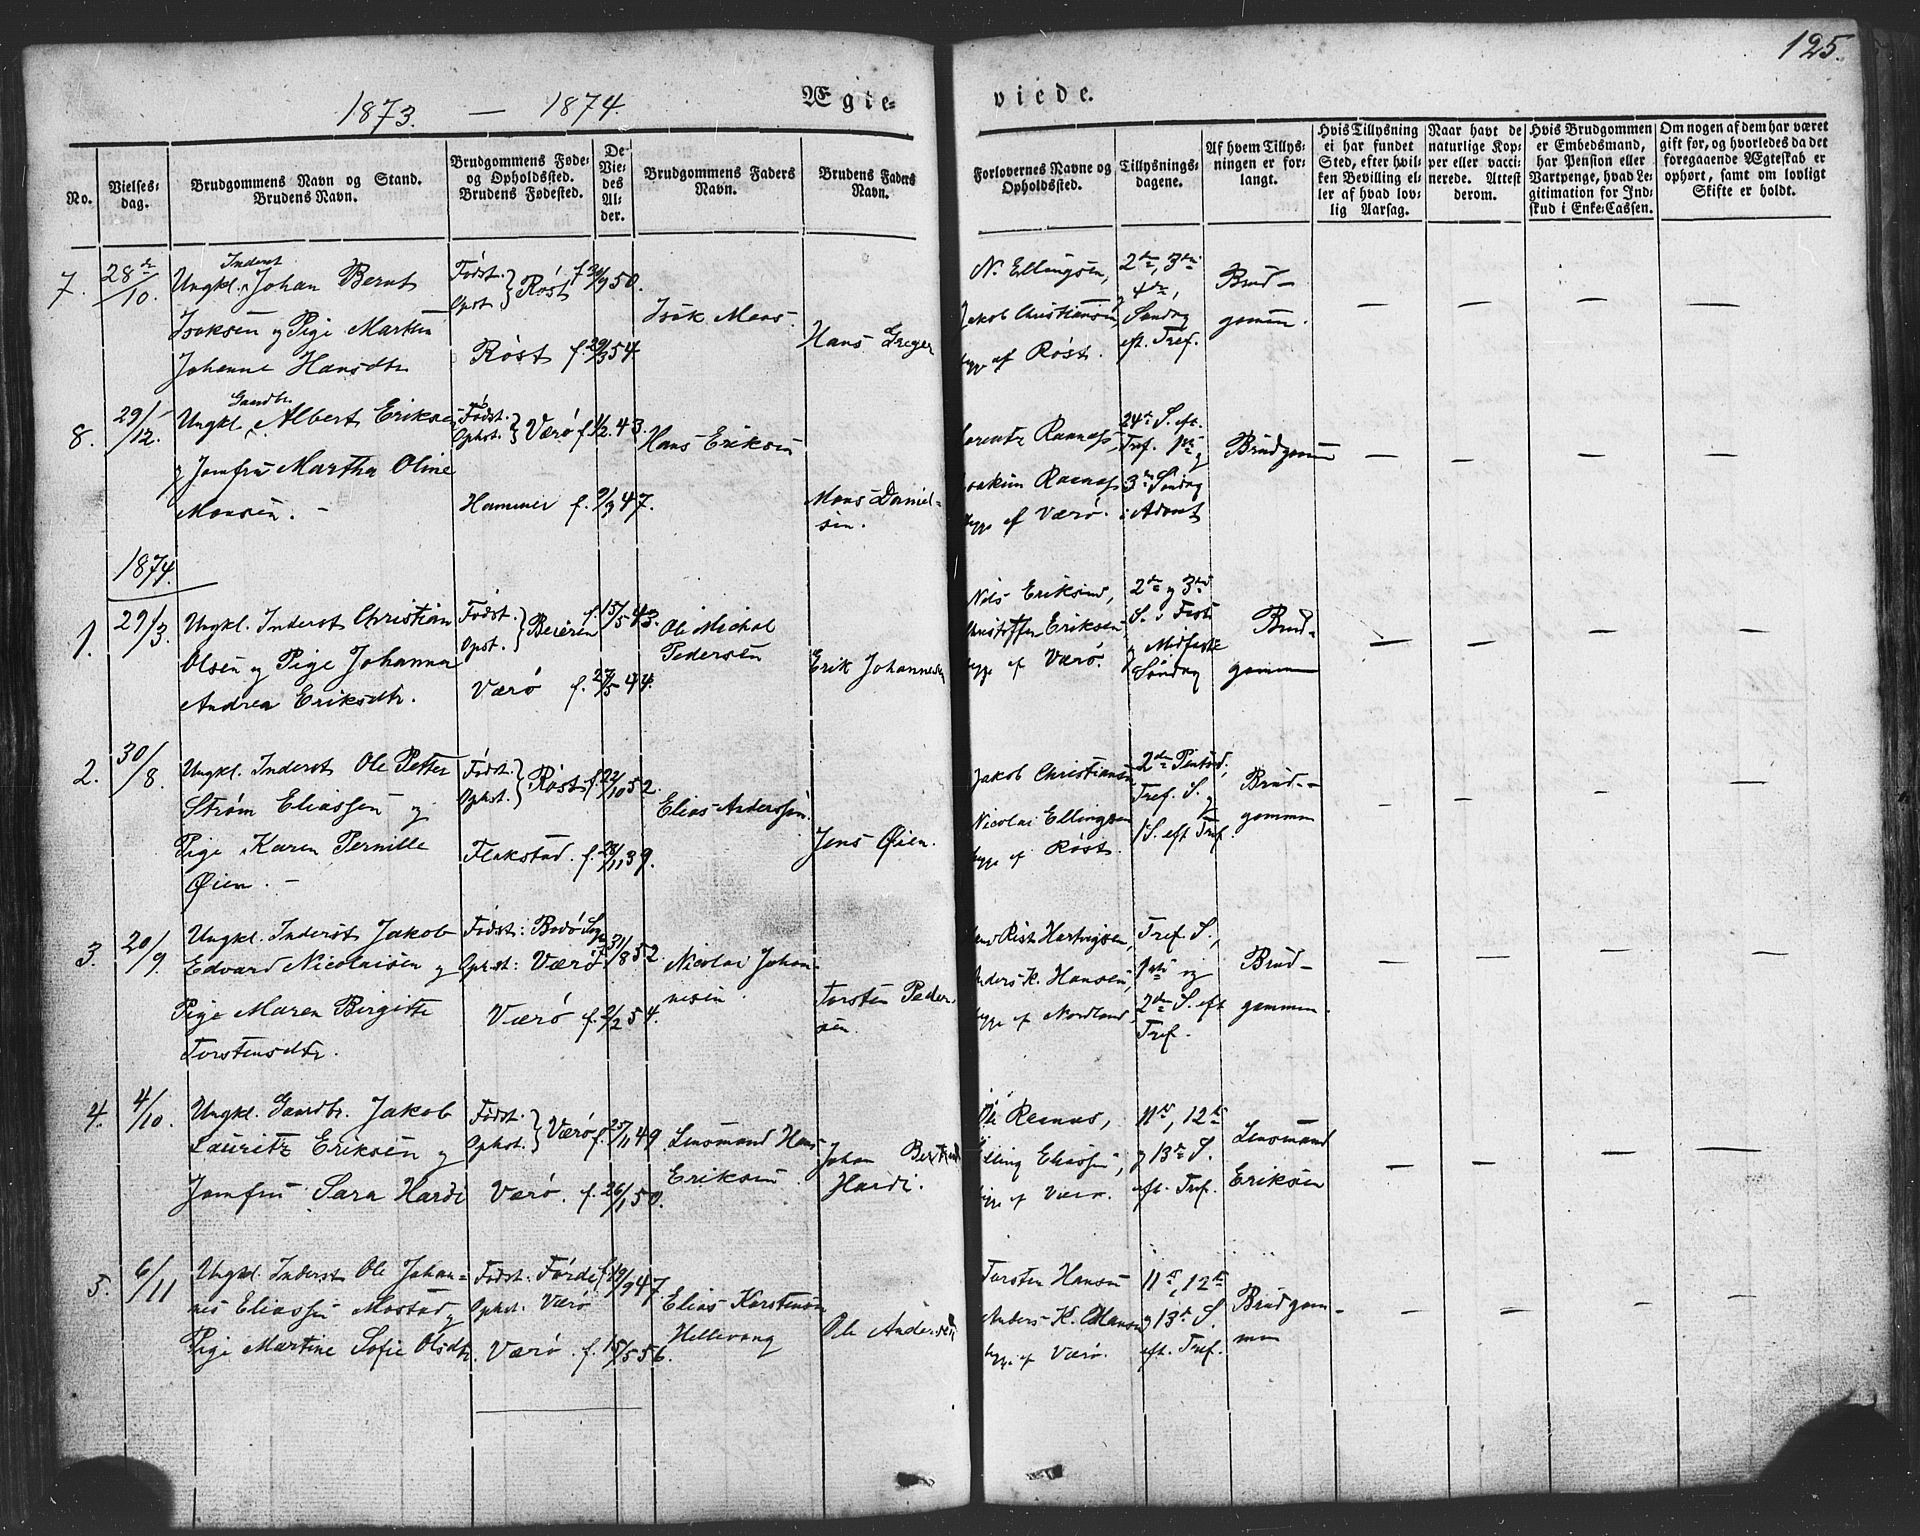 125.
1873. — 1874.
Ægte-
viede.
No.
Vielses-
dag.
Brudgommens Navn og Stand.
Brudens Navn.
Brudgommens Føde-
og Opholdsted.
Brudens Fødested.
De
Vie-
des
Al-
der.
Brudgommens Faders
Navn.
Brudens Faders
Navn.
Forlovernes Navne og
Opholdsted.
Tillysnings-
dagene.
Af hvem Tillys-
ningen er for-
langt.
Hvis Tillysning
ei har fundet
Sted, efter hvil-
ken Bevilling el-
ler af hvad lov-
lig Aarsag.
Naar havt de
naturlige Kop-
per eller vacci-
nerede. Attest
derom.
Hvis Brudgommen
er Embedsmand,
har Pension eller
Vartpenge, hvad Le-
gitimation for Ind-
skud i Enke-Cassen.
Om nogen af dem har været
gift før, og hvorledes da det
foregaaende Ægteskab er
ophørt, samt om lovligt
Skifte er holdt.
7. 28de/10.
Inderst
Ungkl. Johan Bernt
Isaksen og Pige Martin
Johanne Hansdtr
Født.
Opst. } Røst
Røst f. 29/3 54
50.
Isak Mons.
Hans Greger
N. Ellingsen,
Jakob Christiansen,
begge af Røst.
2den, 3die
4de,
Søndag
eft. Tref.
Brud-
gomen.
8. 29/12.
Gaardbr.
Ungkl. Albert Eriksen
og Jomfru Martha Oline
Monsen. –
Født.
Ophst. } Værø f. 1/2. 43.
Hammer f. 9/3 47.
Hans Eriksen
Mons Daniel-
sen.
Lorentz
Joakim
begge af Værø.
24de S. eft.
Tref. 1ste og
3die Søndag
i Advent
Brudgomen
1874.
1. 29/3.
Ungkl. Inderst Christian
Olsen og Pige Johanna
Andrea Eriksdtr.
Født.
Opst. } Beieren f. 15/5 43.
Værø f. 27/5 44.
Ole Michal
Pedersen
Erik Johannesen
Nils Eriksen,
Christoffer Eriksen,
begge af Værø.
2den og 3die
S. i Faste
og Midfaste
Søndag
Brud-
gommen
2. 30/8.
Ungkl. Inderst Ole Petter
Strøm Eliassen og
Pige Karen Pernille
Øien. –
Født.
Ophst. } Røst f. 22/10 52.
Flakstad. f. 28/11 39.
Elias Anderssen.
Jens Øien.
Jakob Christiansen
Nicolai Ellingsen
begge af Røst.
2den Pintsd.,
Tref. S. og
1 S. eft Tref.
Brud-
gommen
3. 20/9.
Ungkl. Inderst Jakob
Edvard Nicolaisen og
Pige Maren Birgitte
Torstensdtr.
Født: Bodø Sogn
Ophst: Værø 31/8 52.
Værø f. 2/2 54.
Nicolai Johan-
nesen.
Torsten Peder-
sen.
Rist Hartvigsen,
Anders K. Hansen,
begge af Nordland,
Tref. S.,
1ste og
2den S. eft
Tref.
Brud-
gommen.
4. 4/10.
Ungkl. Gaardbr. Jakob
Lauritz Eriksen og
Jomfru Sara Hardi
Født.
Ophst. } Værø f. 25/11 49.
Værø. f. 26/1 50.
Lensmand Hans
Eriksen.
Johan
Hardi.
Ole
Elling Eliassen,
begge af Værø.
11te, 12te
og 13de S.
eft. Tref.
Lensmand
Eriksen
5. 6/11
Ungkl. Inderst Ole Johan-
nes Eliassen Mostad og
Pige Martine Sofie Olsdtr.
Født: Førde f. 19/9 47.
Ophst: Værø
Værø f. 15/5 56.
Elias Karstensen
Hellevang
Ole Andersen
Torsten Hansen
Anders K. Hansen
begge af Værø.
11te, 12te
og 13de S.
eft. Tref.
Brudgom-
men